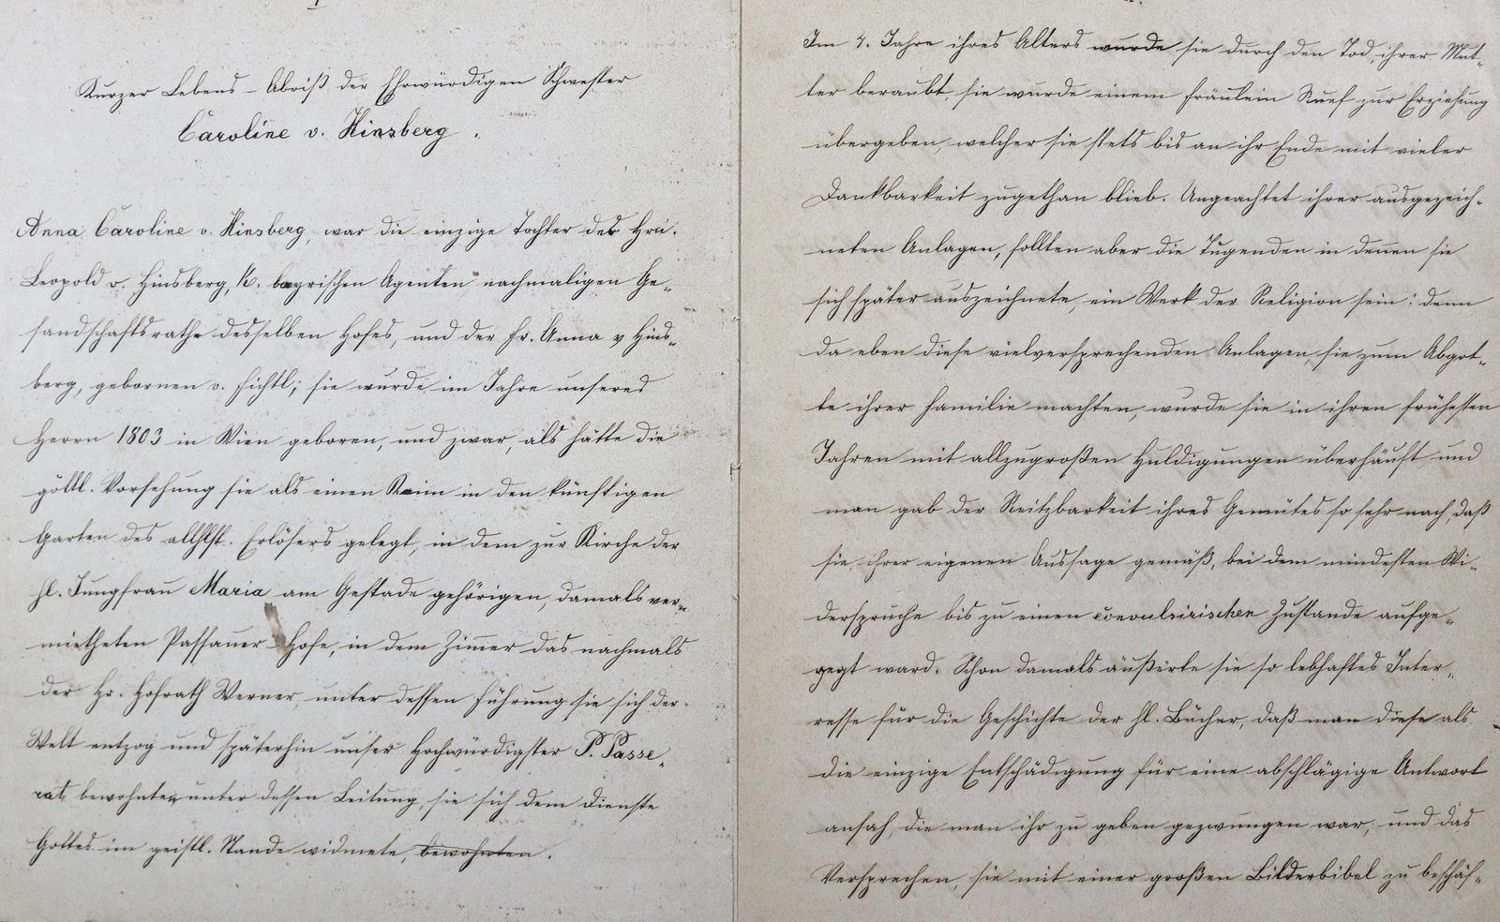 Kurzer Lebens-Abriß der Ehrwürdigen Schwester
Caroline v. Hinsberg.
Anna Caroline v. Hinsberg, war die einzige Tochter des Hrn.
Leopold v. Hinsberg, K. bayrischen Agenten nachmaligen Ge-
sandschaftsrathe desselben Hofes, und der Fr. Anna v Hins-
berg, gebornen v. Fichtl; sie wurde im Jahre unsered
Herrn 1803 in Wien geboren, und zwar, als hätte die
göttl. Vorsehung sie als einen Keim in den künftigen
Garten des allhlst. Erlösers gelegt, in dem zur Kirche der
hl. Jungfrau Maria am Gestade gehörigen, damals ver-
mietheten Passauer Hofe, in dem Zimer das nachmals
der Hr. Hofrath Werner, unter dessen Führung sie sich der
Welt entzog und späterhin unser Hochwürdigster P. Passe-
rat, bewohnten, unter dessen Leitung sie sich dem Dienste
Gottes im geistl. Stande widmete, bewohnten.
Im 4. Jahre ihres Alters wurde sie durch den Tod ihrer Mut-
ter beraubt, sie wurde einem Fräulein Ruef zur Erziehung
übergeben, welcher sie stets bis an ihr Ende mit vieler
Dankbarkeit zugethan blieb. Ungeachtet ihrer ausgezeich-
neten Anlagen, sollten aber die Tugenden in denen sie
sich später auszeichnete, ein Werk der Religion sein: denn
da eben diese vielversprechenden Anlagen sie zum Abgot-
te ihrer Familie machten, wurde sie in ihren frühesten
Jahren mit allzugroßen Huldigungen überhäuft und
man gab der Reitzbarkeit ihres Gemütes so sehr nach, daß
sie ihrer eigenen Aussage gemäß, bei dem mindesten Wi-
derspruche bis zu einen convulsirischen Zustande aufge-
regt ward. Schon damals äußerte sie so lebhaftes Inter-
resse für die Geschichte der hl. Bücher, daß man diese als
die einzige Entschädigung für eine abschlägige Antwort
ansah, die man ihr zu geben gezwungen war, und das
Versprechen, sie mit einer großen Bilderbibel zu beschäf-